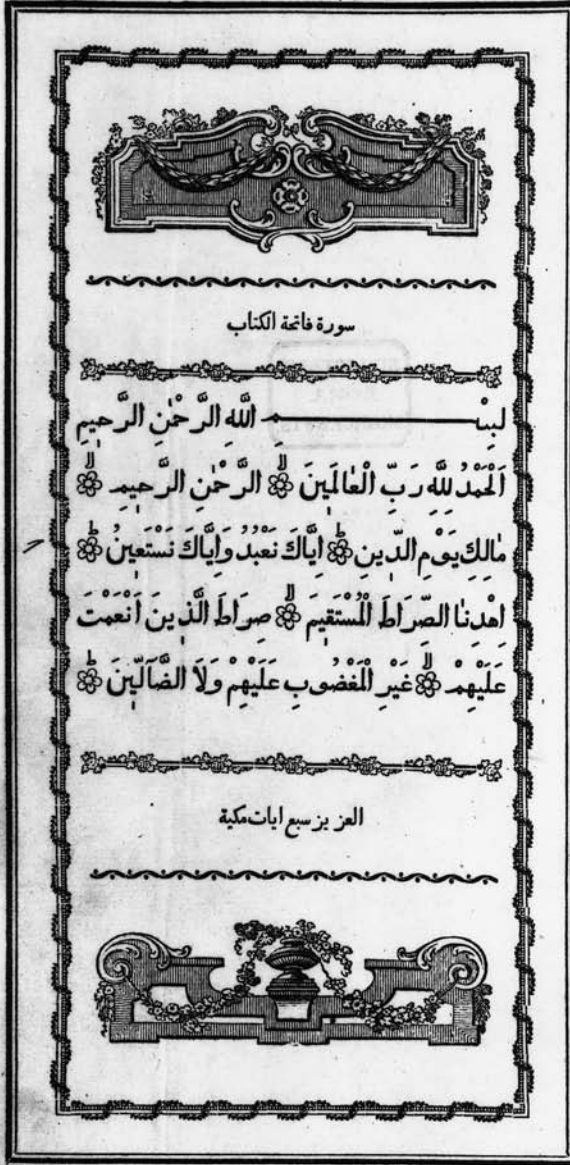 سورة فاتحة الكتاب
لبِنْـــــــــمِ اللَّهِ الرَّحْمٰنِ الرَّحِيمِ
اَلْحَمْدُ لِلَّهِ رَبِّ الْعَالَمِينَ ۞ الرَّحْمٰنِ الرَّحِيمِ ۞
مَالِكِ يَوْمِ الدِّينِ ۞ اِيَّاكَ نَعْبُدُ وَاِيَّاكَ نَسْتَعِينُ ۞
اِهْدِنَا الصِّرَاطَ الْمُسْتَقِيمَ ۞ صِرَاطَ الَّذِينَ اَنْعَمْتَ
عَلَيْهِمْ ۞ غَيْرِ الْمَغْضُوبِ عَلَيْهِمْ وَلَا الضَّآلِّينَ ۞
العزيز سبع ايات مكية